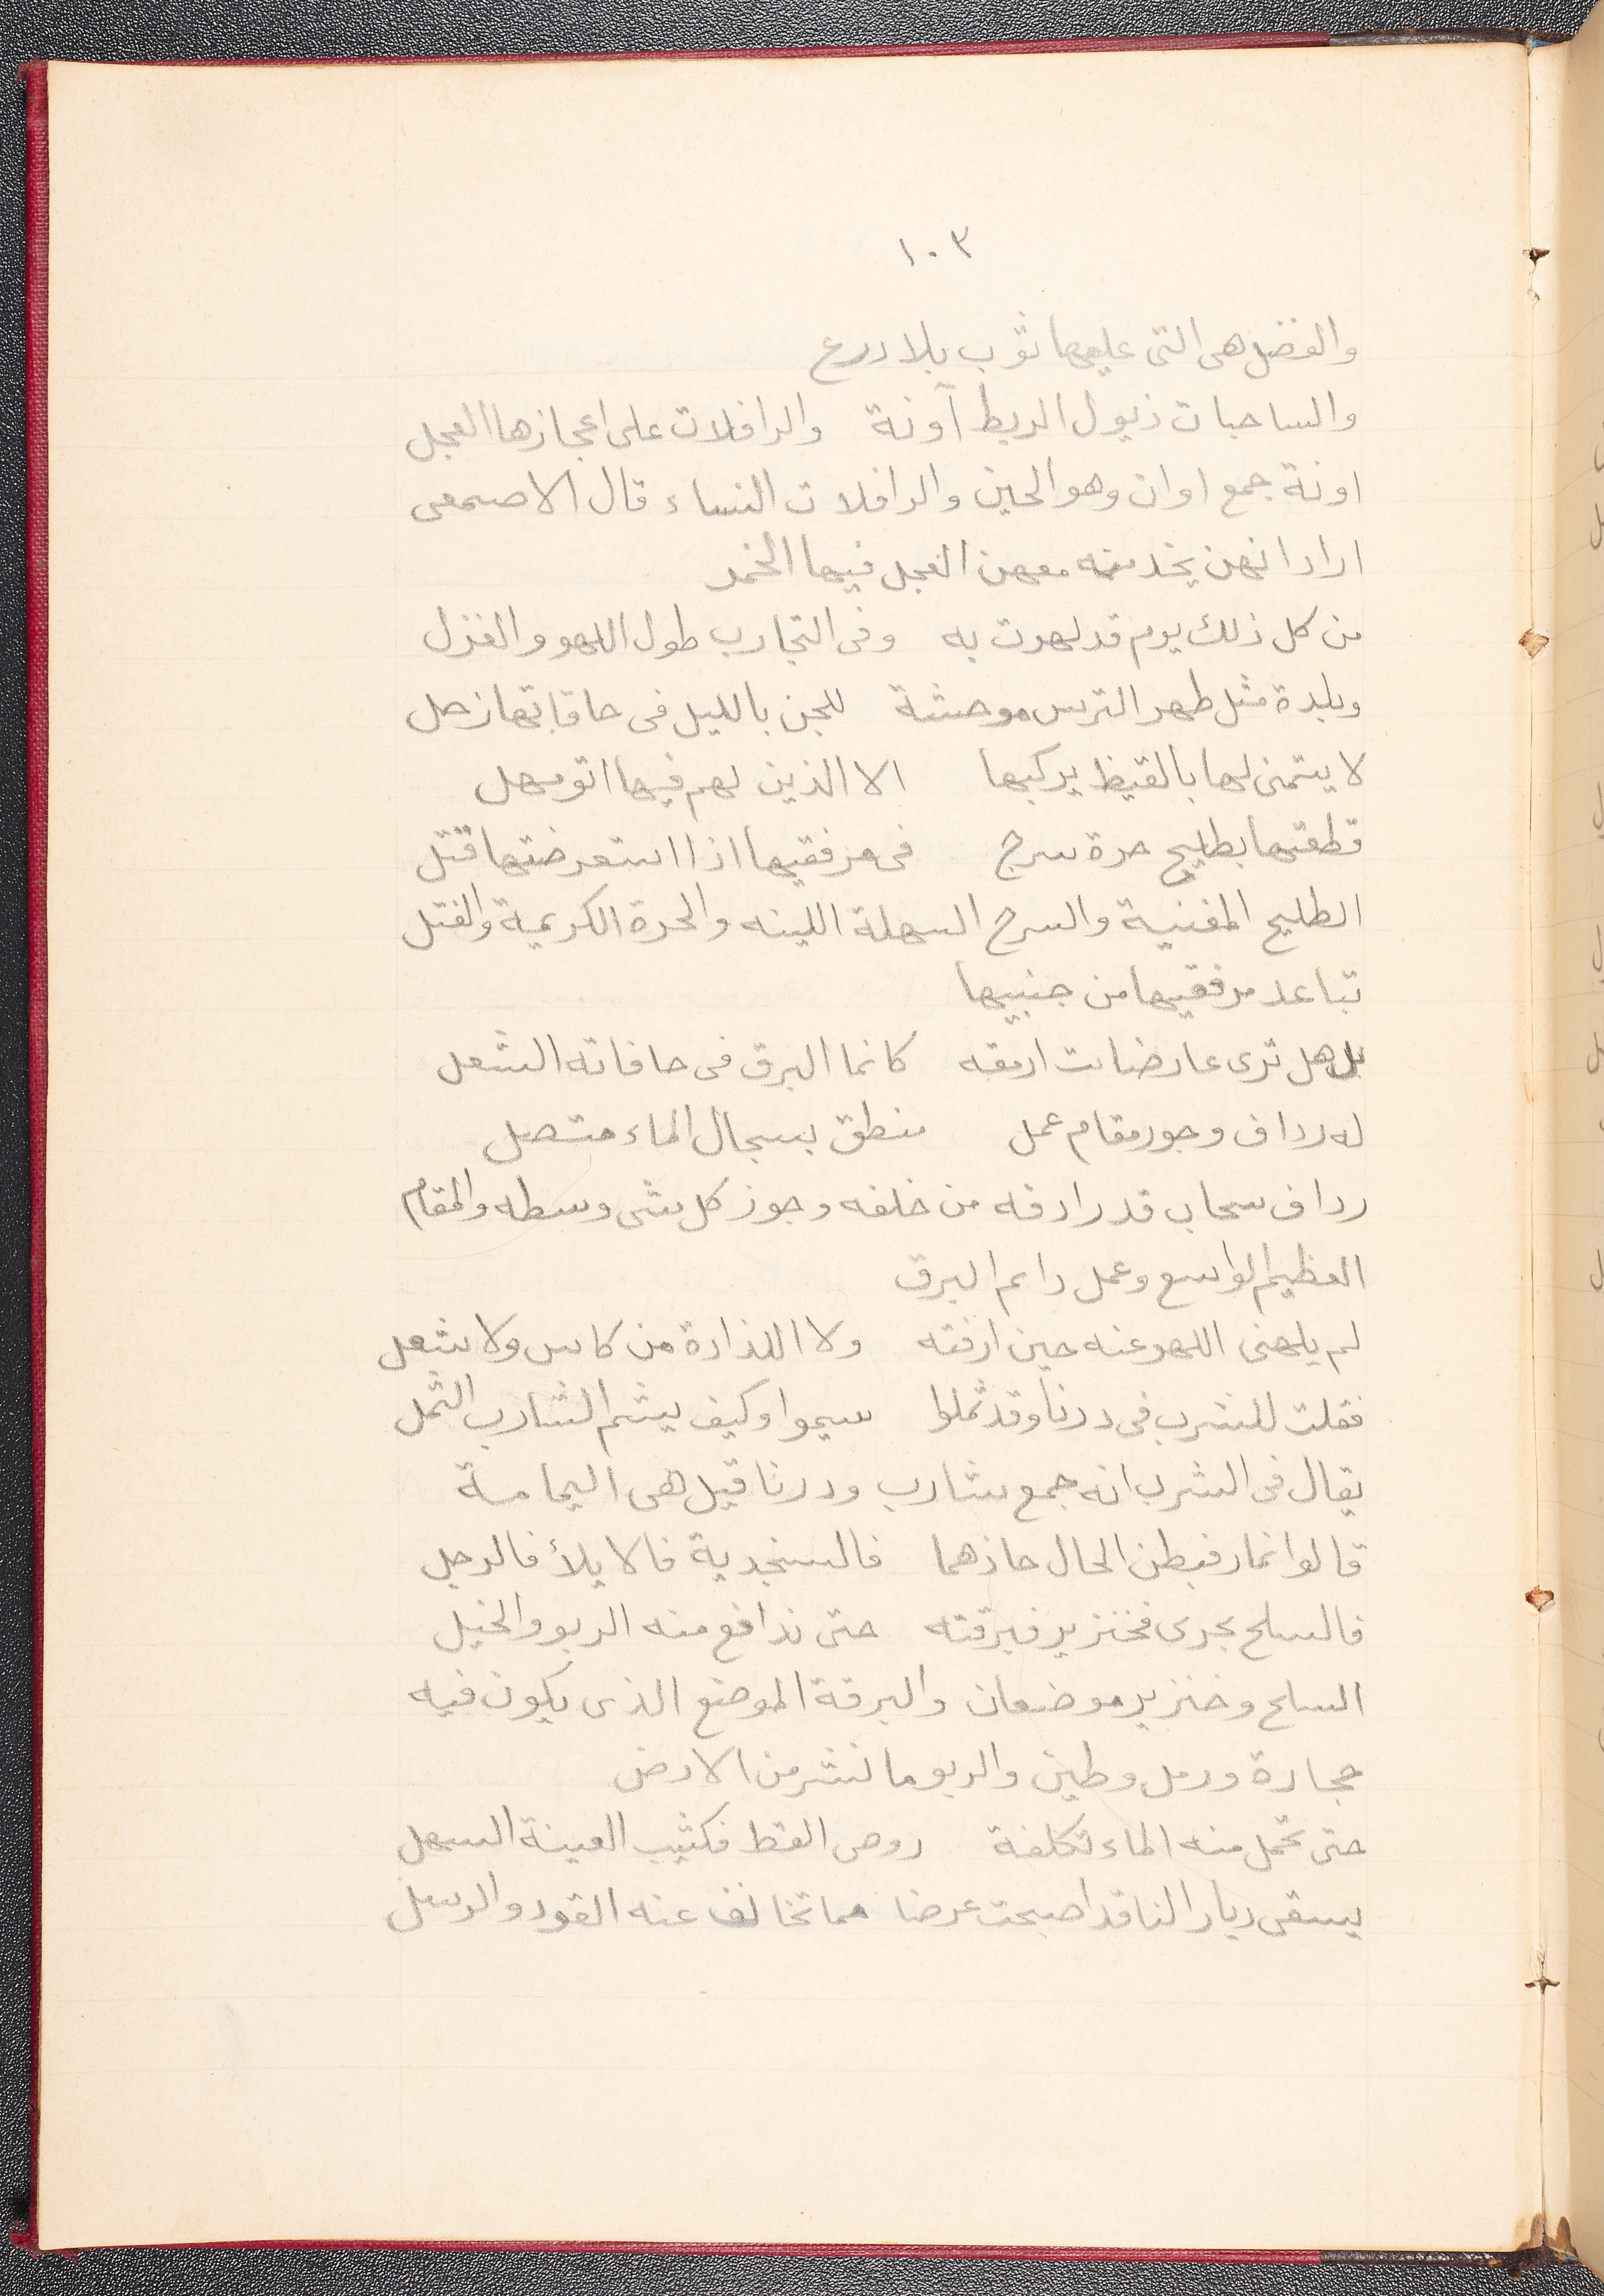 ١٠٣
والفضل هى التى عليها ثوب بلا درع
والساحبات ذيول الريط آونة والرافلات على اعجازها العجل
اونة جمع اوان وهو الحين والرافلات النساء قال الاصمعى
اراد انهن يخدمنه معهن العجل فيها الخمر
من كل ذلك يوم قد لهوت به وفى التجارب طول اللهو والغزل
وبلدة مثل ظهر الترس موحشة للجن بالليل فى حافاتها زجل
لا يتمنى لها بالقيظ يركبها الا الذين لهم فيها اتو مهل
قطعتها بطليح حرة سرح فى مرفقيها اذا استعرضتها فتل
الطليح المغنية والسرح السهلة اللينه والحرة الكريمة والفتل
تباعد مرفقيها من جنبيها
بل هل ترى عارضا بت ارمقه كانما البرق فى حافاته الشعل
له رداف وجوز مقام عمل منطق بسجال الماء متصل
رداف سحاب قد رادفه من خلفه وجوز كل شى وسطه والمقام
العظيم الواسع وعمل دائم البرق
لم يلهنى اللهو عنه حين ارقته ولا اللذاذة من كاس ولا شعل
فقلت للشرب فى درنا وقد ثملوا سيموا وكيف يشم الشارب الثمل
يقال فى الشرب انه جمع شارب ودرنا قيل هى اليمامة
قالوا نمار فبطن الحال جاذهما فالسنجدية فالا بلأ فالرجل
فالسلح يجرى فخنزير فبرقته حتى تدافع منه الربو والخيل
السلح وخنزير موضعان والبرقة الموضع الذى يكون فيه
حجارة ورمل وطين والربو ما نشر من الارض
حتى تحمل منه الماء تكلفة روض القطا فكثيب الغينة السهل
يسقى ديار النا قد اصبحت عرضا مما تخالف عنه القود والرسل